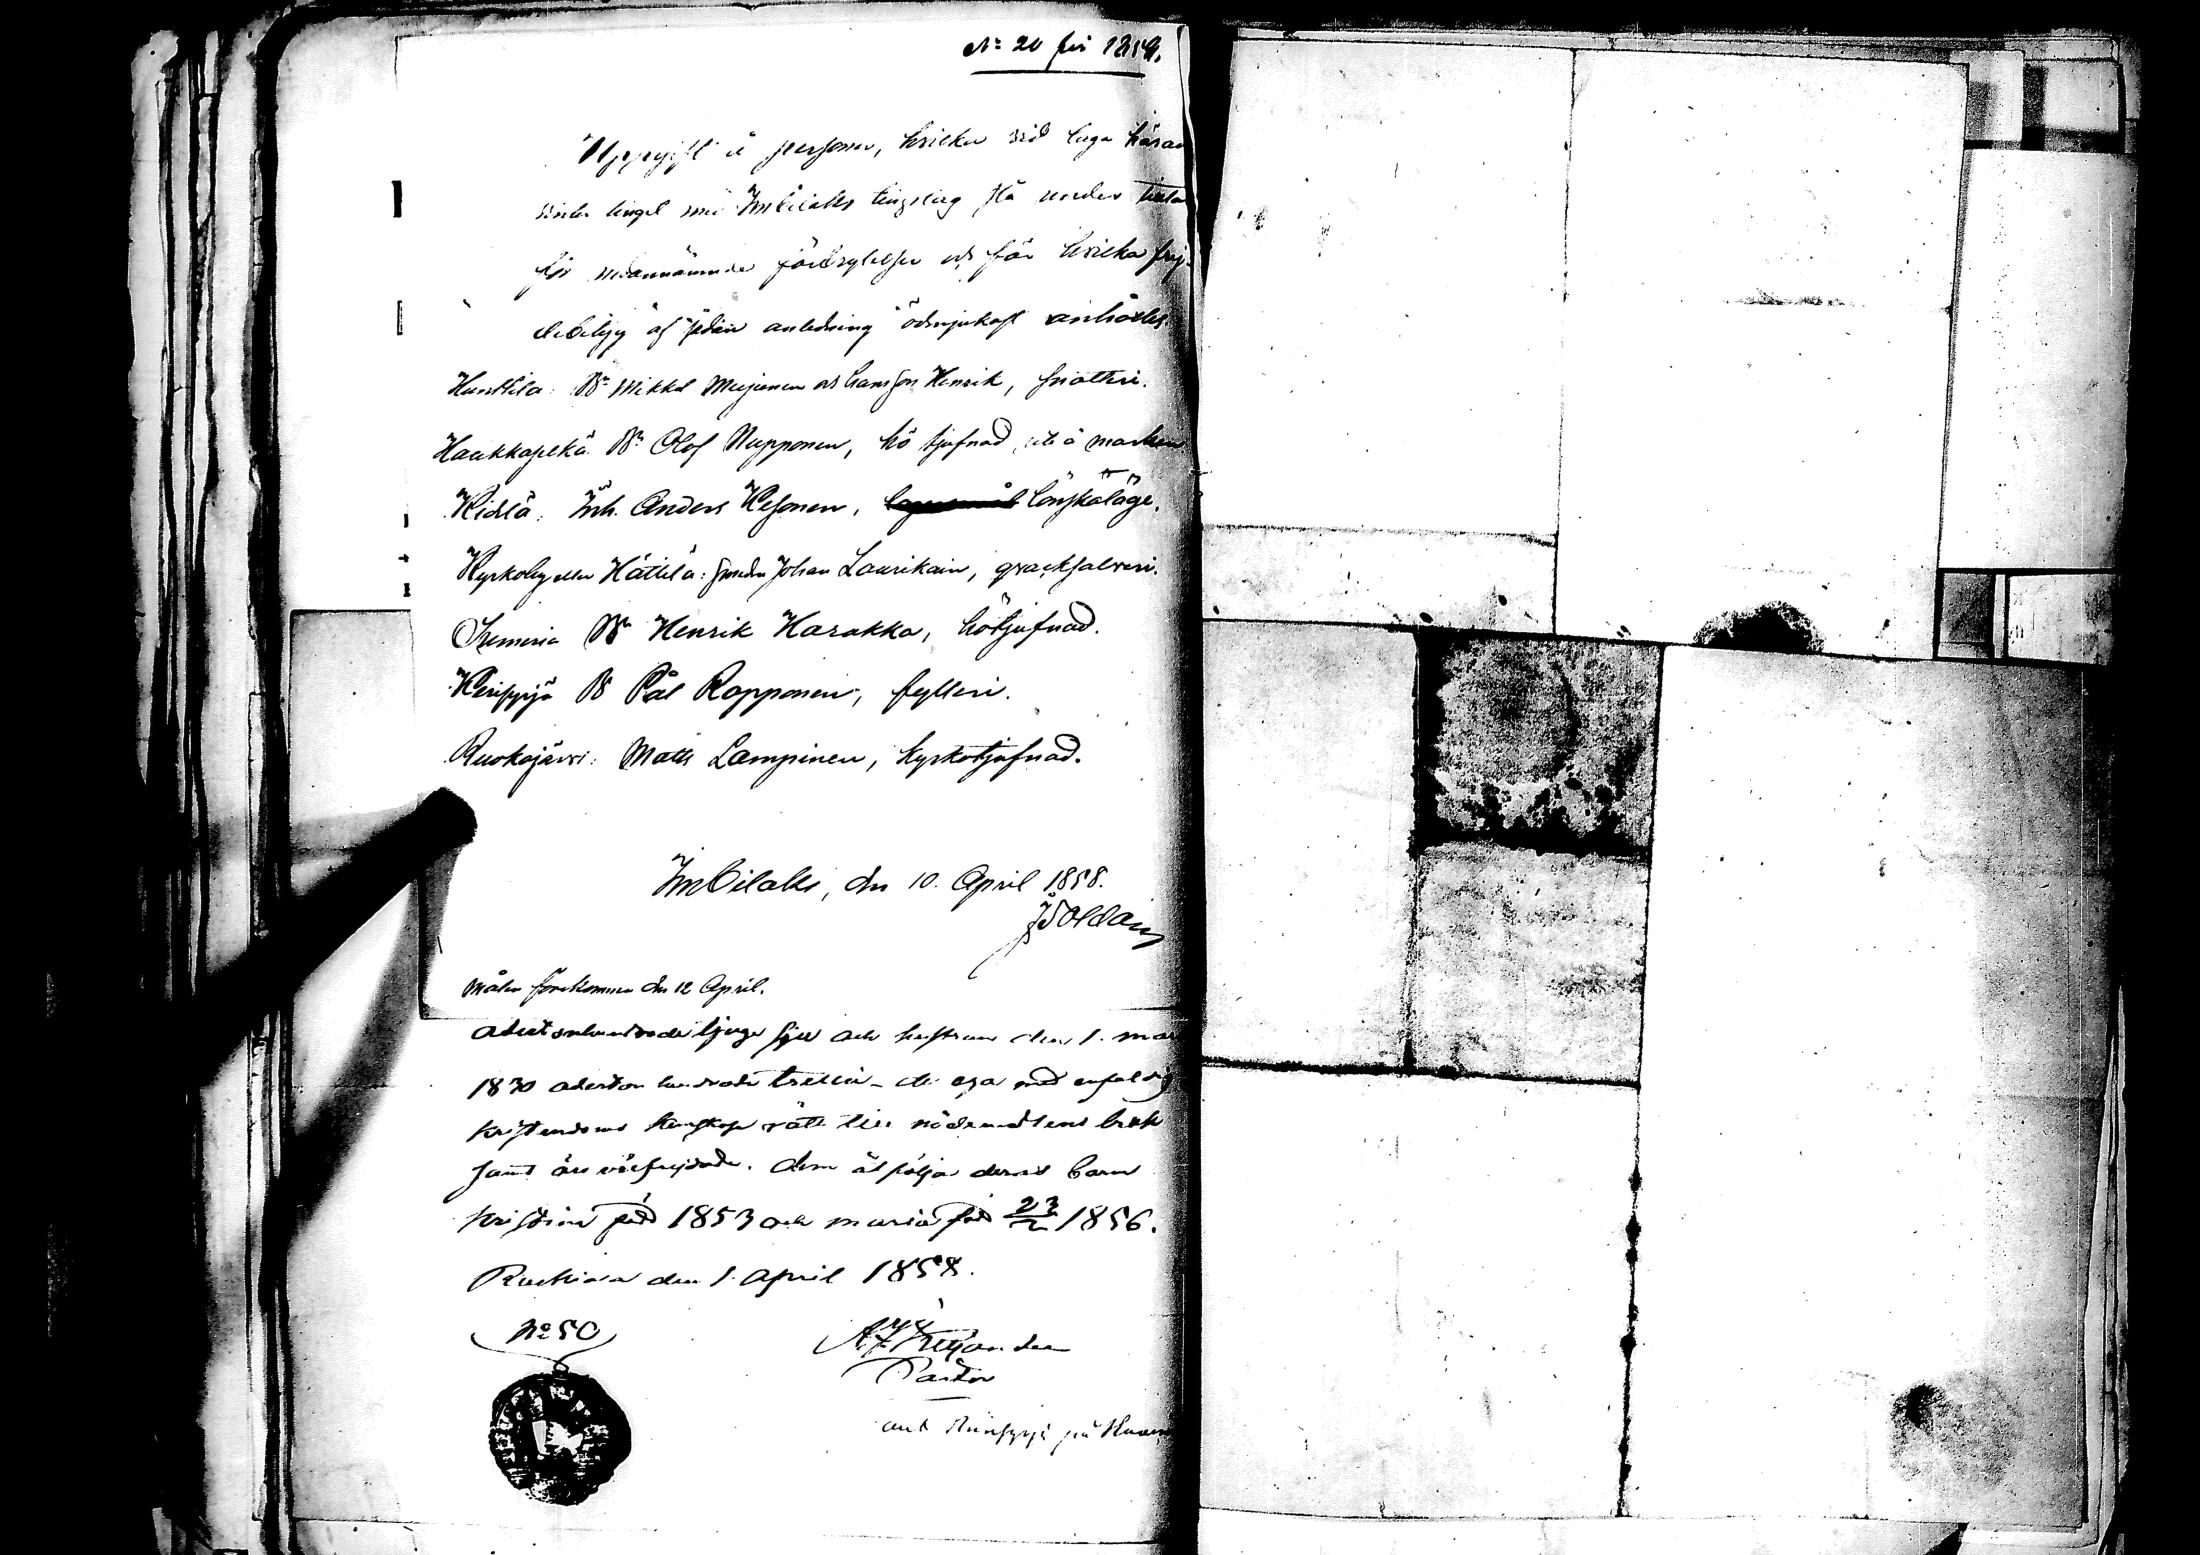 No 20 för 1858.
Uppgift å personer, hvilka vid laga häran
vinter tinget med Imbilaks tingslag stå under tiltal
för nedannämnde förbrytelser och för hvilka frej-
debetyg af sådan anledning ödmjukast anhålles.
Hunttila: B. Mikkel Meijonen och hans son Henrik, snatteri.
Haukkaselkä Bn Olof Nupponen, hö tjufnad ute å marken
Kidelä: Inh. Anders Kesonen, lönskaläge.
Kyrkoby eller Hättilä: Smeden Johan Laurikain, qvacksalveri.
Bn Henrik Harakka, hötjufnad.
B Pål Ropponen, fylleri.
Ruokojärvi: Matts Lampinen, kyrkotjufnad.
Imbilaks, den 10. April 1858.
Målen förekommer den 12 April.
adertonhundrade tjugu sju och hustrun den 1. mar
1830 adertonhundrade trettio - de ega med enfaldig
kristendoms kunskap rätt till nådemedlens bruk
samt äro välfrejdade. Dem åtfölja deras barn
Kristina född 1853 och Maria född 23/2 1856.
Ruskiala den 1. April 1858.
No 50
Pastor